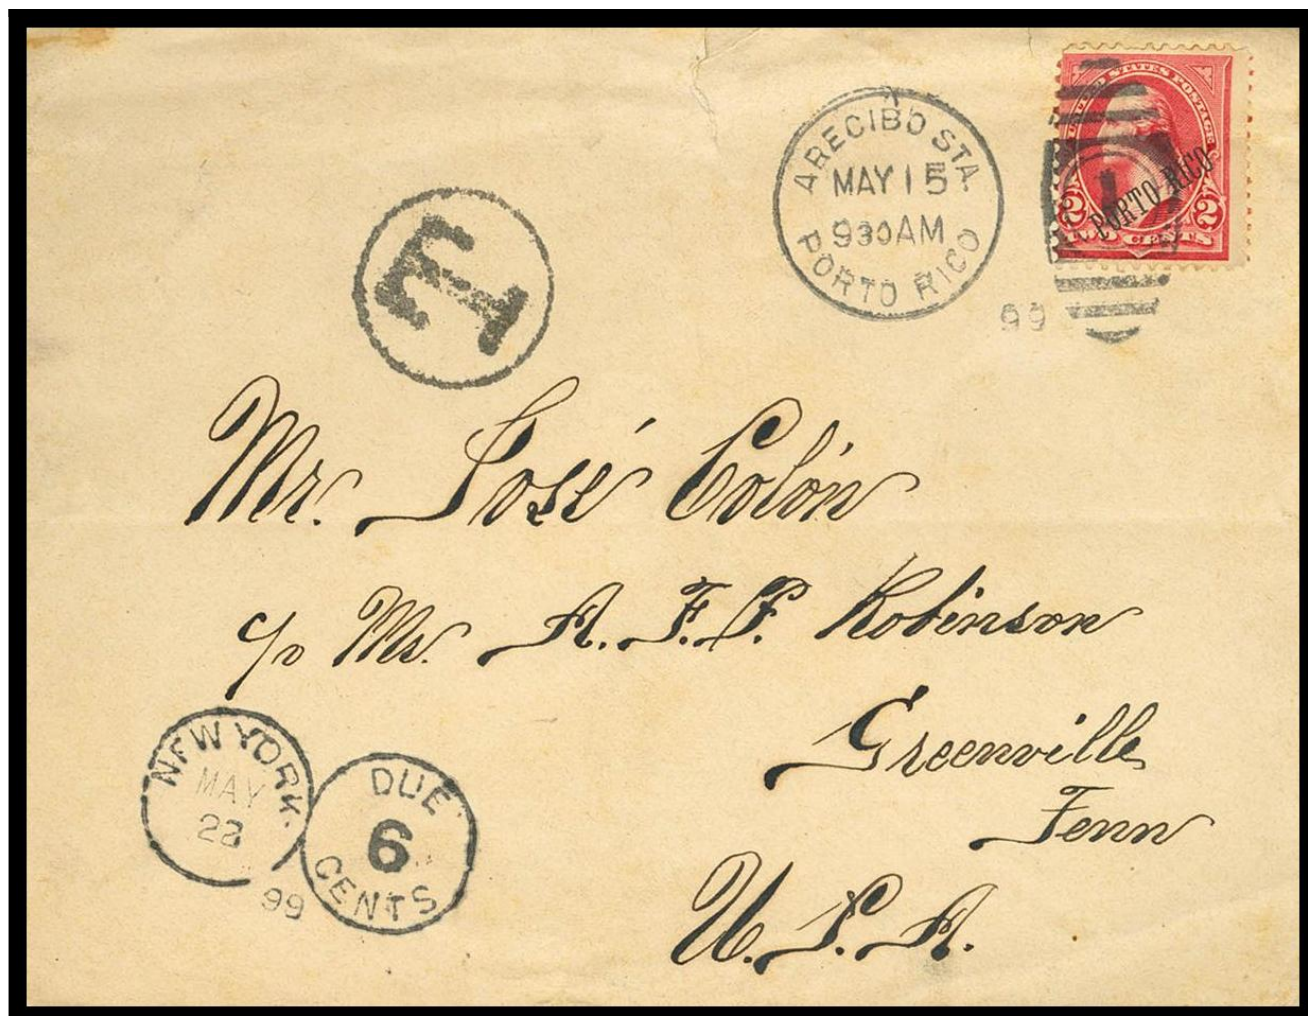 UNITED STATES POSTAGE
PORTO RICO
2 2
CENTS
ARECIBO STA.
MAY 15
930AM
PORTO RICO
99
T
Mr. José Colón
c/o Mr. A. F. P. Robinson
Greenville
Tenn
U.S.A.
NEW YORK.
MAY
99
DUE
6
CENTS